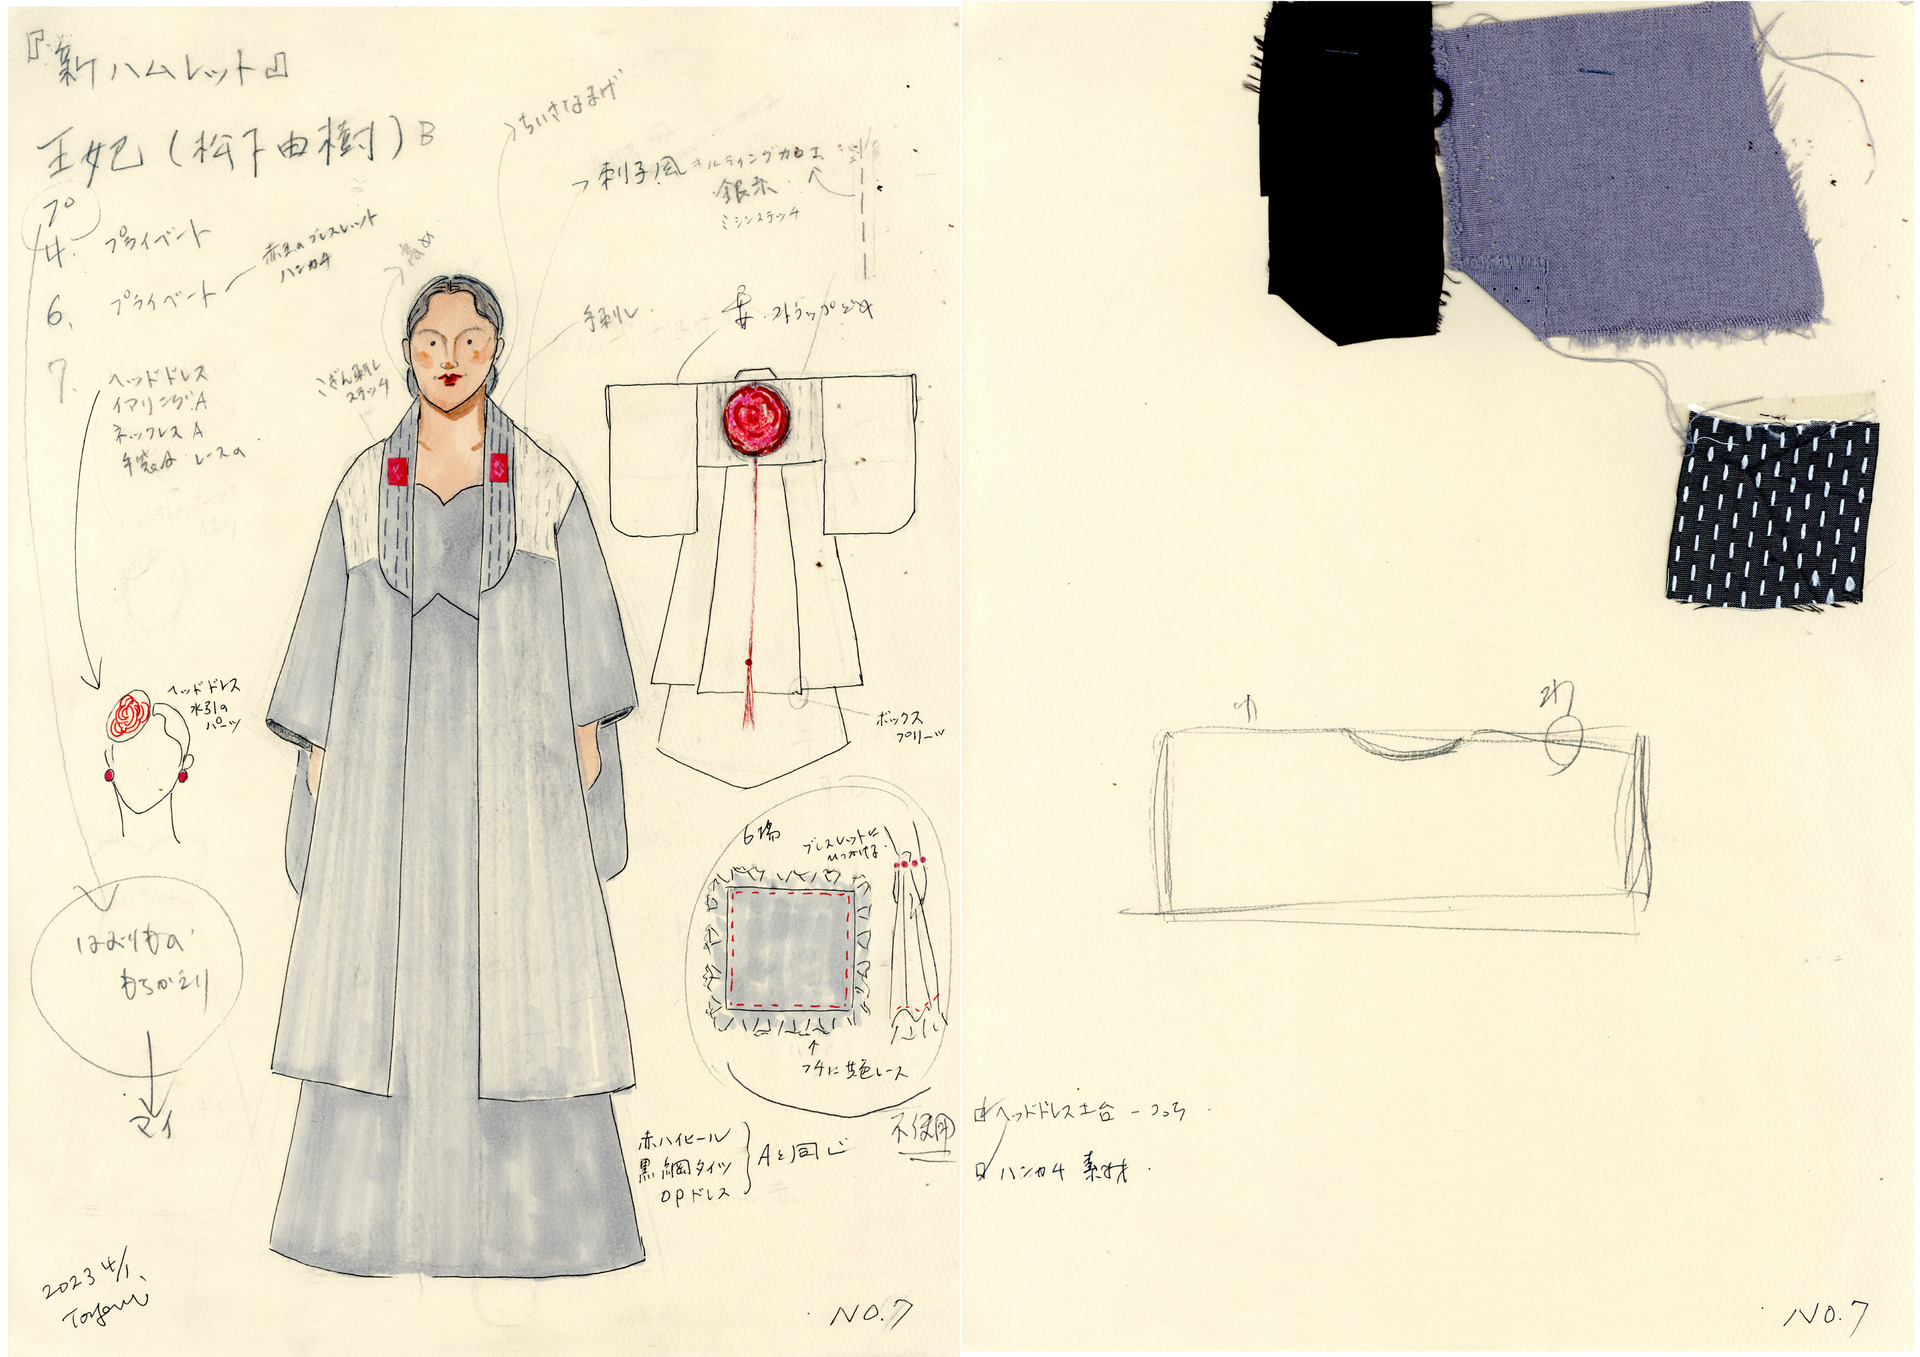 『新ハムレット』
王妃(松下由樹)B
プロ
4. プライベート
6. プライベート
赤玉のブレスレット
ハンカチ
7. ヘッドドレス
イヤリングA
ネックレスA
手袋 レースの
ちいさなまげ
刺子風キルティング加工
銀糸
ミシンステッチ
高め
手刺し
こぎん刺し
ステッチ
ストラップどめ
ボックス
プリーツ
ヘッドドレス
水引の
パーツ
はおりもの
もちかえり
マイ
6場
ブレスレットに
ひっかける
フチに共色レース
不使用
赤ハイヒール
黒網タイツ
OPドレス
Aと同じ
2023 4/1
NO.7
わ
ヘッドドレス土台 -
ハンカチ 素材
NO.7